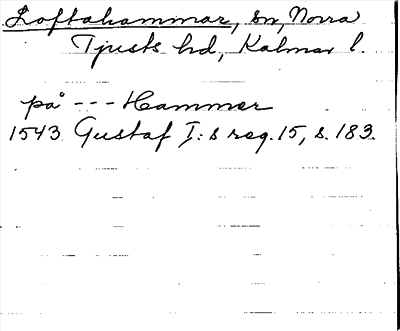 Loftahammar, sn, Norra
Tjusts hd, Kalmar l.
på --- Hammer
1543 Gustaf I:s reg. 15, s. 183.